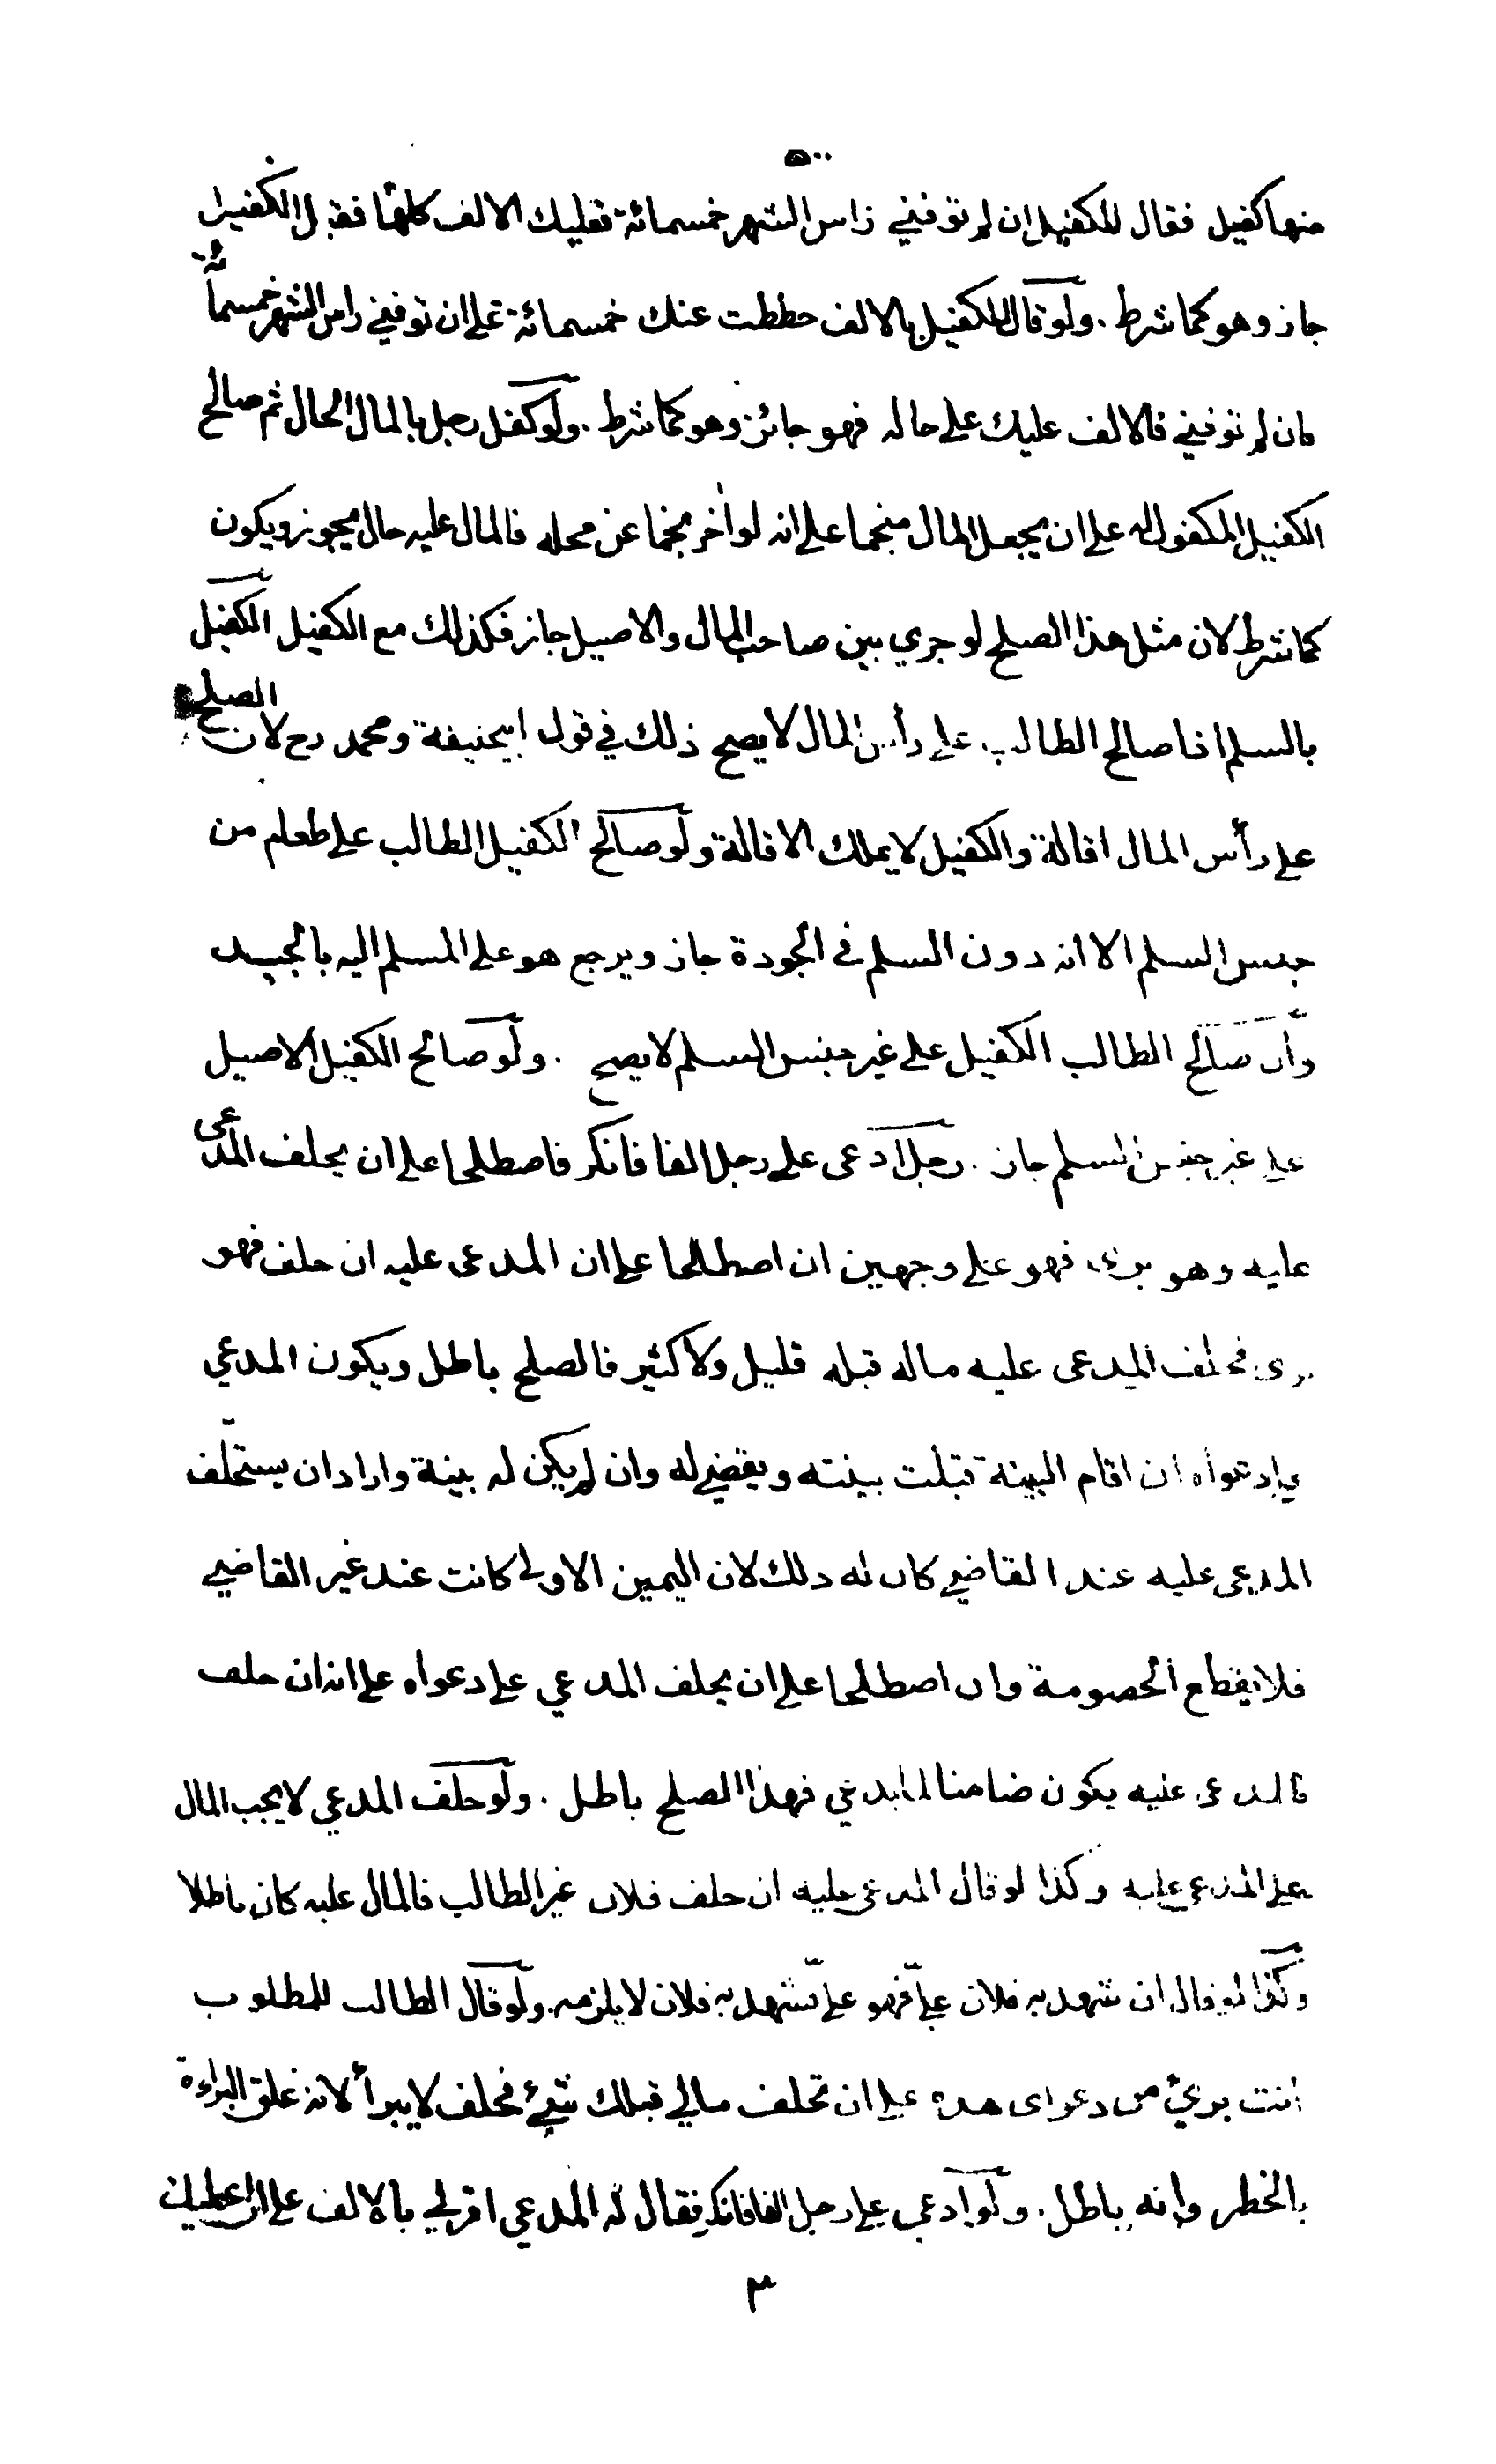 ٥٠٠
منها كفيل فقال للكفيل ان لم توفني راس الشهر خمسمائة فعليك الالف كلها فقبل الكفيل
جاز وهو كما شرط . ولو قال للكفيل بالالف حططت عنك خمسمائة على ان توفيني راس الشهر خمسمائة
فان لم توفيني فالالف عليك على حاله فهو جائز وهو كما شرط . ولو كفل رجل بالمال الحال ثم صالح
الكفيل المكفول له على ان يجعل المال منجما على انه لو أخر نجما عن محله فالمال عليه حال يجوز ويكون
كما شرط لان مثل هذا الصلح لو جرى بين صاحب المال والاصيل جاز فكذلك مع الكفيل الكفيل
بالسلم اذا صالح الطالب على رأس المال لا يصح ذلك في قول ابيحنيفة ومحمد رح لان الصلح
على رأس المال اقالة والكفيل لا يملك الاقالة ولو صالح الكفيل الطالب على طعام من
جنس السلم الا انه دون السلم في الجودة جاز ويرجع هو على المسلم اليه بالجيد
وان صالح الطالب الكفيل على غير جنس السلم لا يصح . ولو صالح الكفيل الاصيل
على غير جنس السلم جاز . رجل ادعى على رجل الفا فانكر فاصطلحا على ان يحلف المدعى
عليه وهو برئ فهو على وجهين ان اصطلحا على ان المدعى عليه ان حلف فهو
برئ فحلف المدعى عليه ماله قبله قليل ولا كثير فالصلح باطل ويكون المدعي
على دعواه ان اقام البينة قبلت بينته ويقضي له وان لم يكن له بينة واراد ان يستحلف
المدعى عليه عند القاضي كان له ذلك لان اليمين الاولى كانت عند غير القاضي
فلا يقطع الخصومة وان اصطلحا على ان يحلف المدعي على دعواه على انه ان حلف
فالمدعى عليه يكون ضامنا لما يدعي فهذا الصلح باطل . ولو حلف المدعي لا يجب المال
على المدعى عليه وكذا لو قال المدعى عليه ان حلف فلان غير الطالب فالمال عليه كان باطلا
وكذا لو قال ان شهد به فلان علي فهو علي فشهد به فلان لا يلزمه . ولو قال الطالب للمطلوب
انت بريء من دعواى هذه على ان تحلف مالي قبلك شيء فحلف لا يبرأ لانه علق البراءة
بالخطر وانه باطل . ولو ادعى على رجل الفا فانكر فقال له المدعي اقر لي بالالف على ان اعطيك
٣